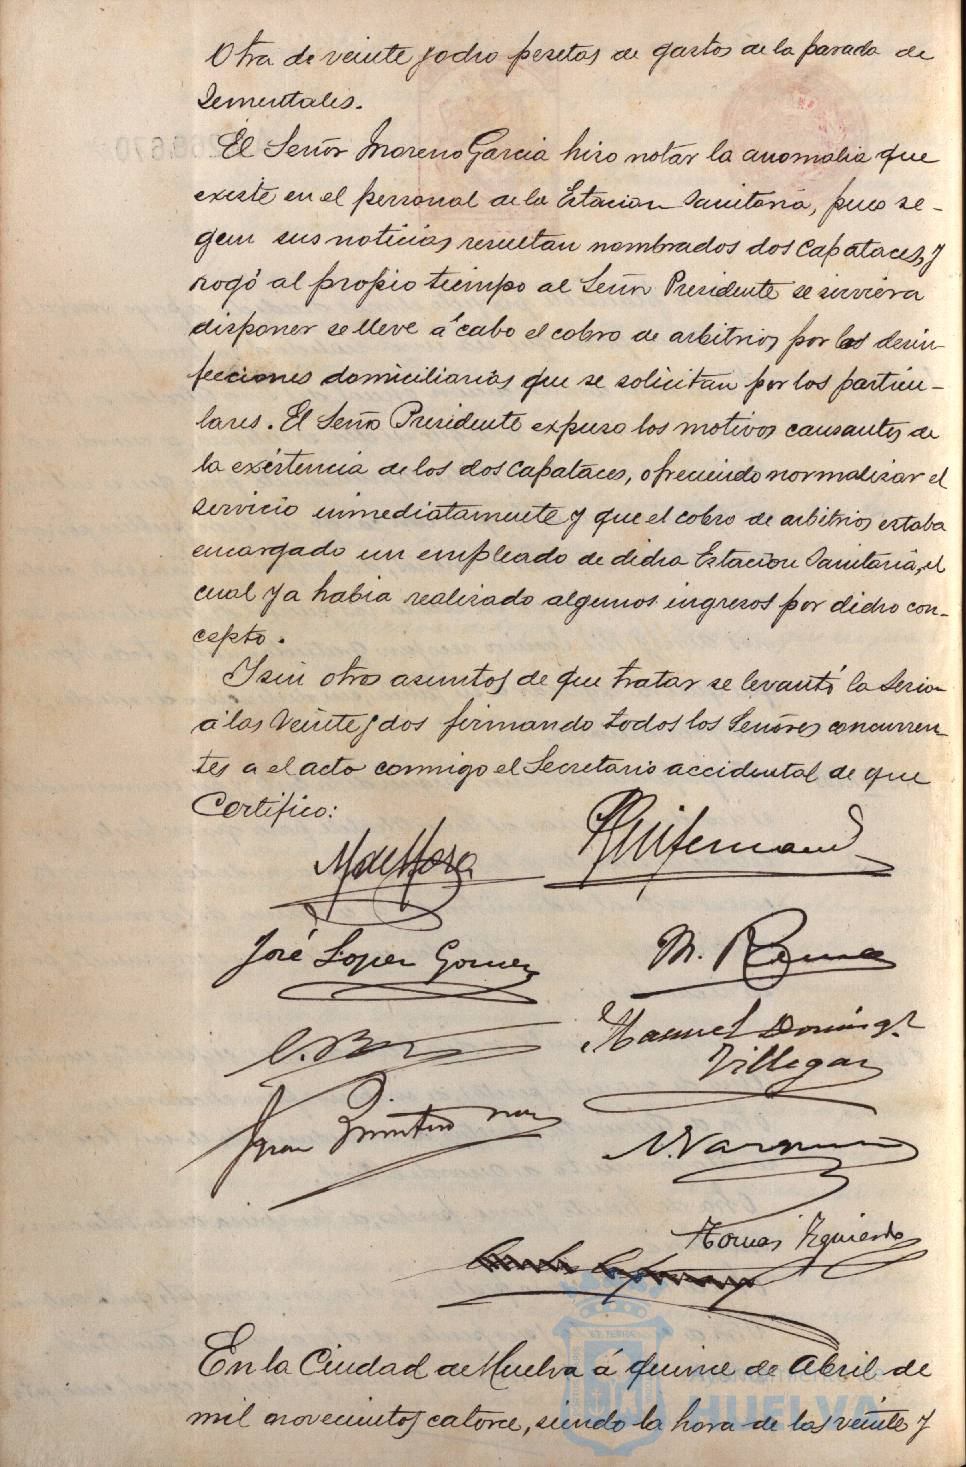 Otra de veinte y ocho pesetas de gastos de la parada de
Sementales.
El Señor Moreno Garcia hizo notar la anomalia que
existe en el personal de la Estacion Sanitaria, pues se-
gun sus noticias resultan nombrados dos capataces, y
rogó al propio tiempo al Señor Presidente se sirviera
disponer se lleve á cabo el cobro de arbitrios por las desin-
fecciones domiciliarias que se solicitan por los particu-
lares. El Señor Presidente expuso los motivos causantes de
la existencia de los dos capataces, ofreciendo normalizar el
servicio inmediatamente y que el cobro de arbitrios estaba
encargado un empleado de dicha Estacion Sanitaria, el
cual ya habia realizado algunos ingresos por dicho con-
cepto.
Y sin otros asuntos de que tratar se levantó la Sesion
á las veinte y dos firmando todos los Señores concurren-
tes a el acto conmigo el Secretario accidental de que
Certifico:
M de Mora
José Lopez Gomez
M.
Manuel Doming.z
Villegas
Juan Quintero
Tomas Izquierdo
En la Ciudad de Huelva á quince de Abril de
mil novecientos catorce, siendo la hora de las veinte y
HUELVA